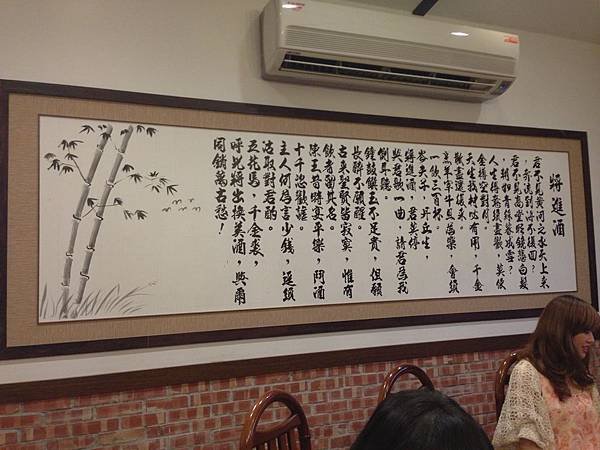 將進酒
君不見黃河之水天上來
，奔流到海不復回？
君不見高堂明鏡悲白髮
，朝如青絲暮成雪？
人生得意須盡歡，莫使
金樽空對月。
天生我材必有用，千金
散盡還復來。
烹羊宰牛且為樂，會須
一飲三百杯。
岑夫子，丹丘生，
將進酒，君莫停
與君歌一曲，請君為我
側耳聽。
鐘鼓饌玉不足貴，但願
長醉不願醒。
古來聖賢皆寂寞，惟有
飲者留其名。
陳王昔時宴平樂，鬥酒
十千恣歡謔。
主人何為言少錢，逕須
沽取對君酌。
五花馬，千金裘，
呼兒將出換美酒，與爾
同銷萬古愁！